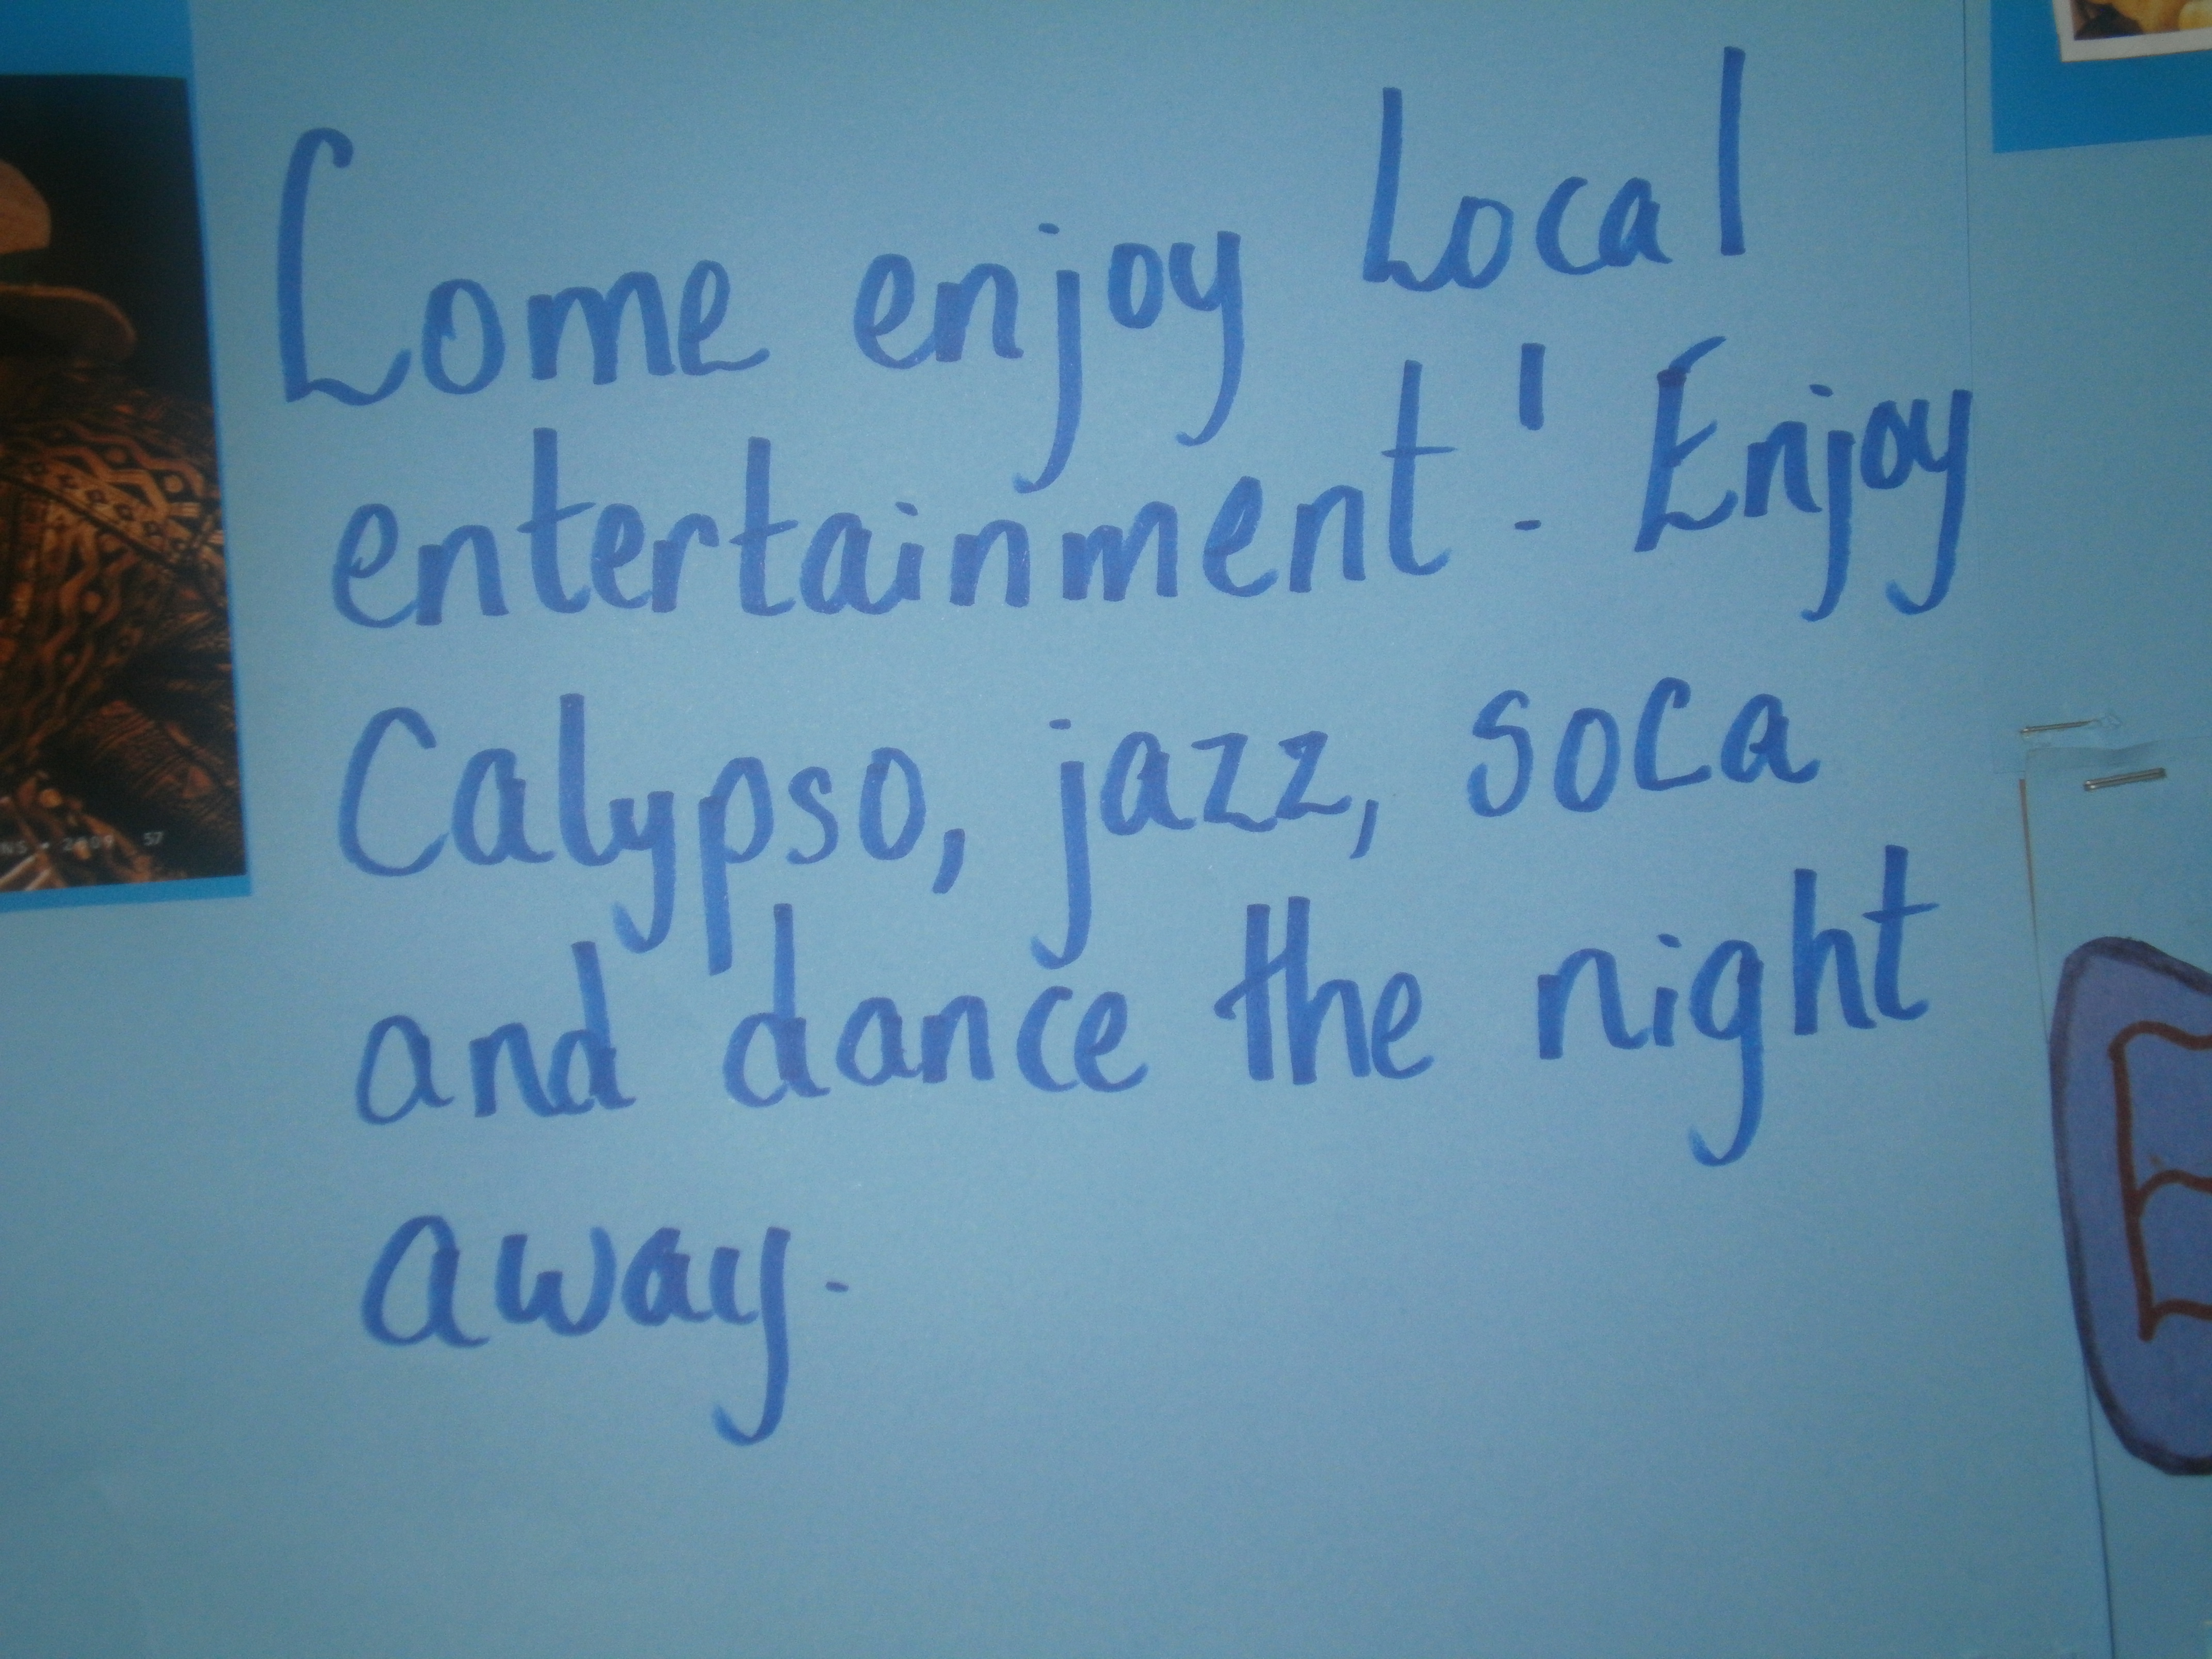 Come enjoy Local
entertainment! Enjoy
Calypso, jazz, soca
and dance the night
away.
NS • 2009 57